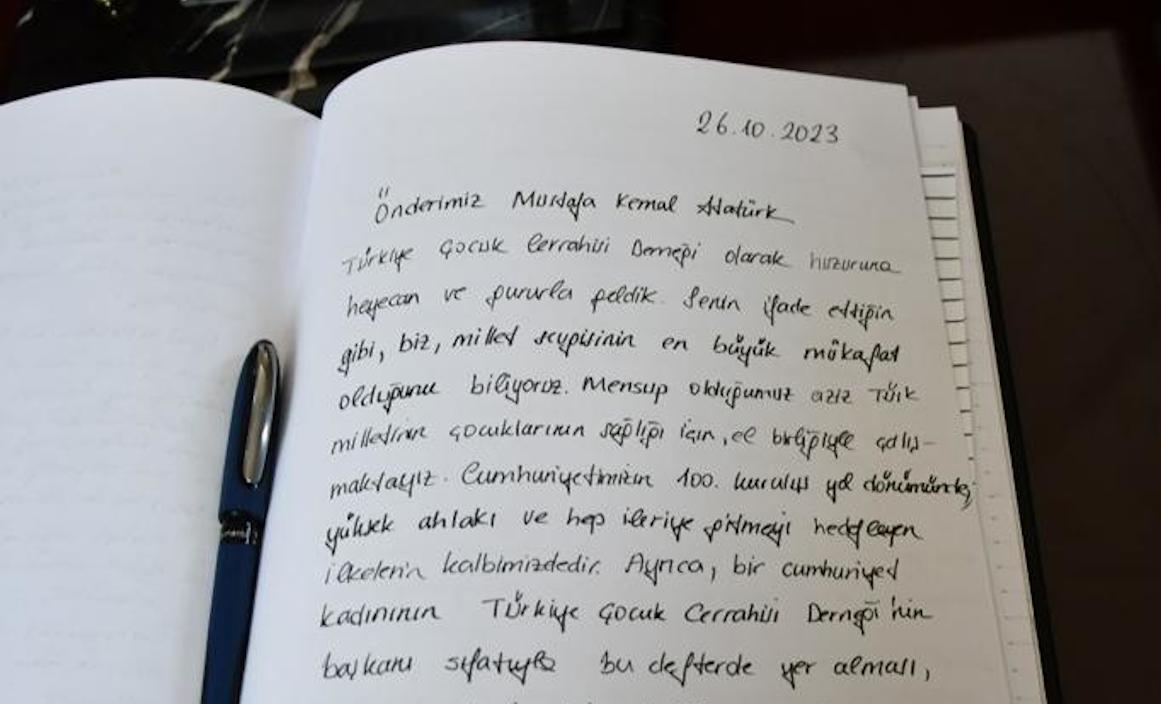 26.10.2023
Önderimiz Mustafa Kemal Atatürk
Türkiye Çocuk Cerrahisi Derneği olarak huzuruna
heyecan ve gururla geldik. Senin ifade ettiğin
gibi, biz, millet sevgisinin en büyük mükafat
olduğunu biliyoruz. Mensup olduğumuz aziz Türk
milletinin çocuklarının sağlığı için, el birliğiyle çalış-
maktayız. Cumhuriyetimizin 100. kuruluş yıl dönümünde,
yüksek ahlakı ve hep ileriye gitmeyi hedefleyen
ilkelerin kalbimizdedir. Ayrıca, bir cumhuriyet
kadınının Türkiye Çocuk Cerrahisi Derneği'nin
başkanı sıfatıyla bu defterde yer alması,